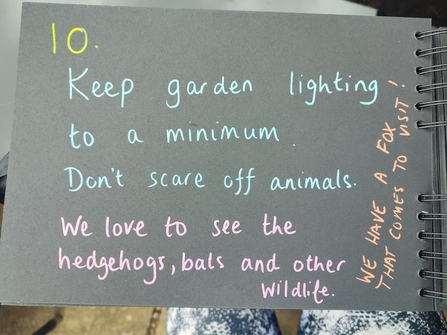 10.
Keep garden lighting
to a minimum.
Don't scare off animals.
We love to see the
hedgehogs, bats and other
wildlife.
WE HAVE A FOX
THAT COMES TO VISIT!